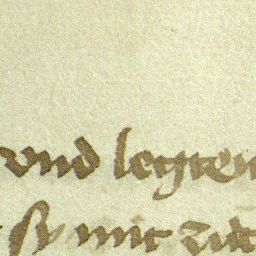 vnd legten
sy mit